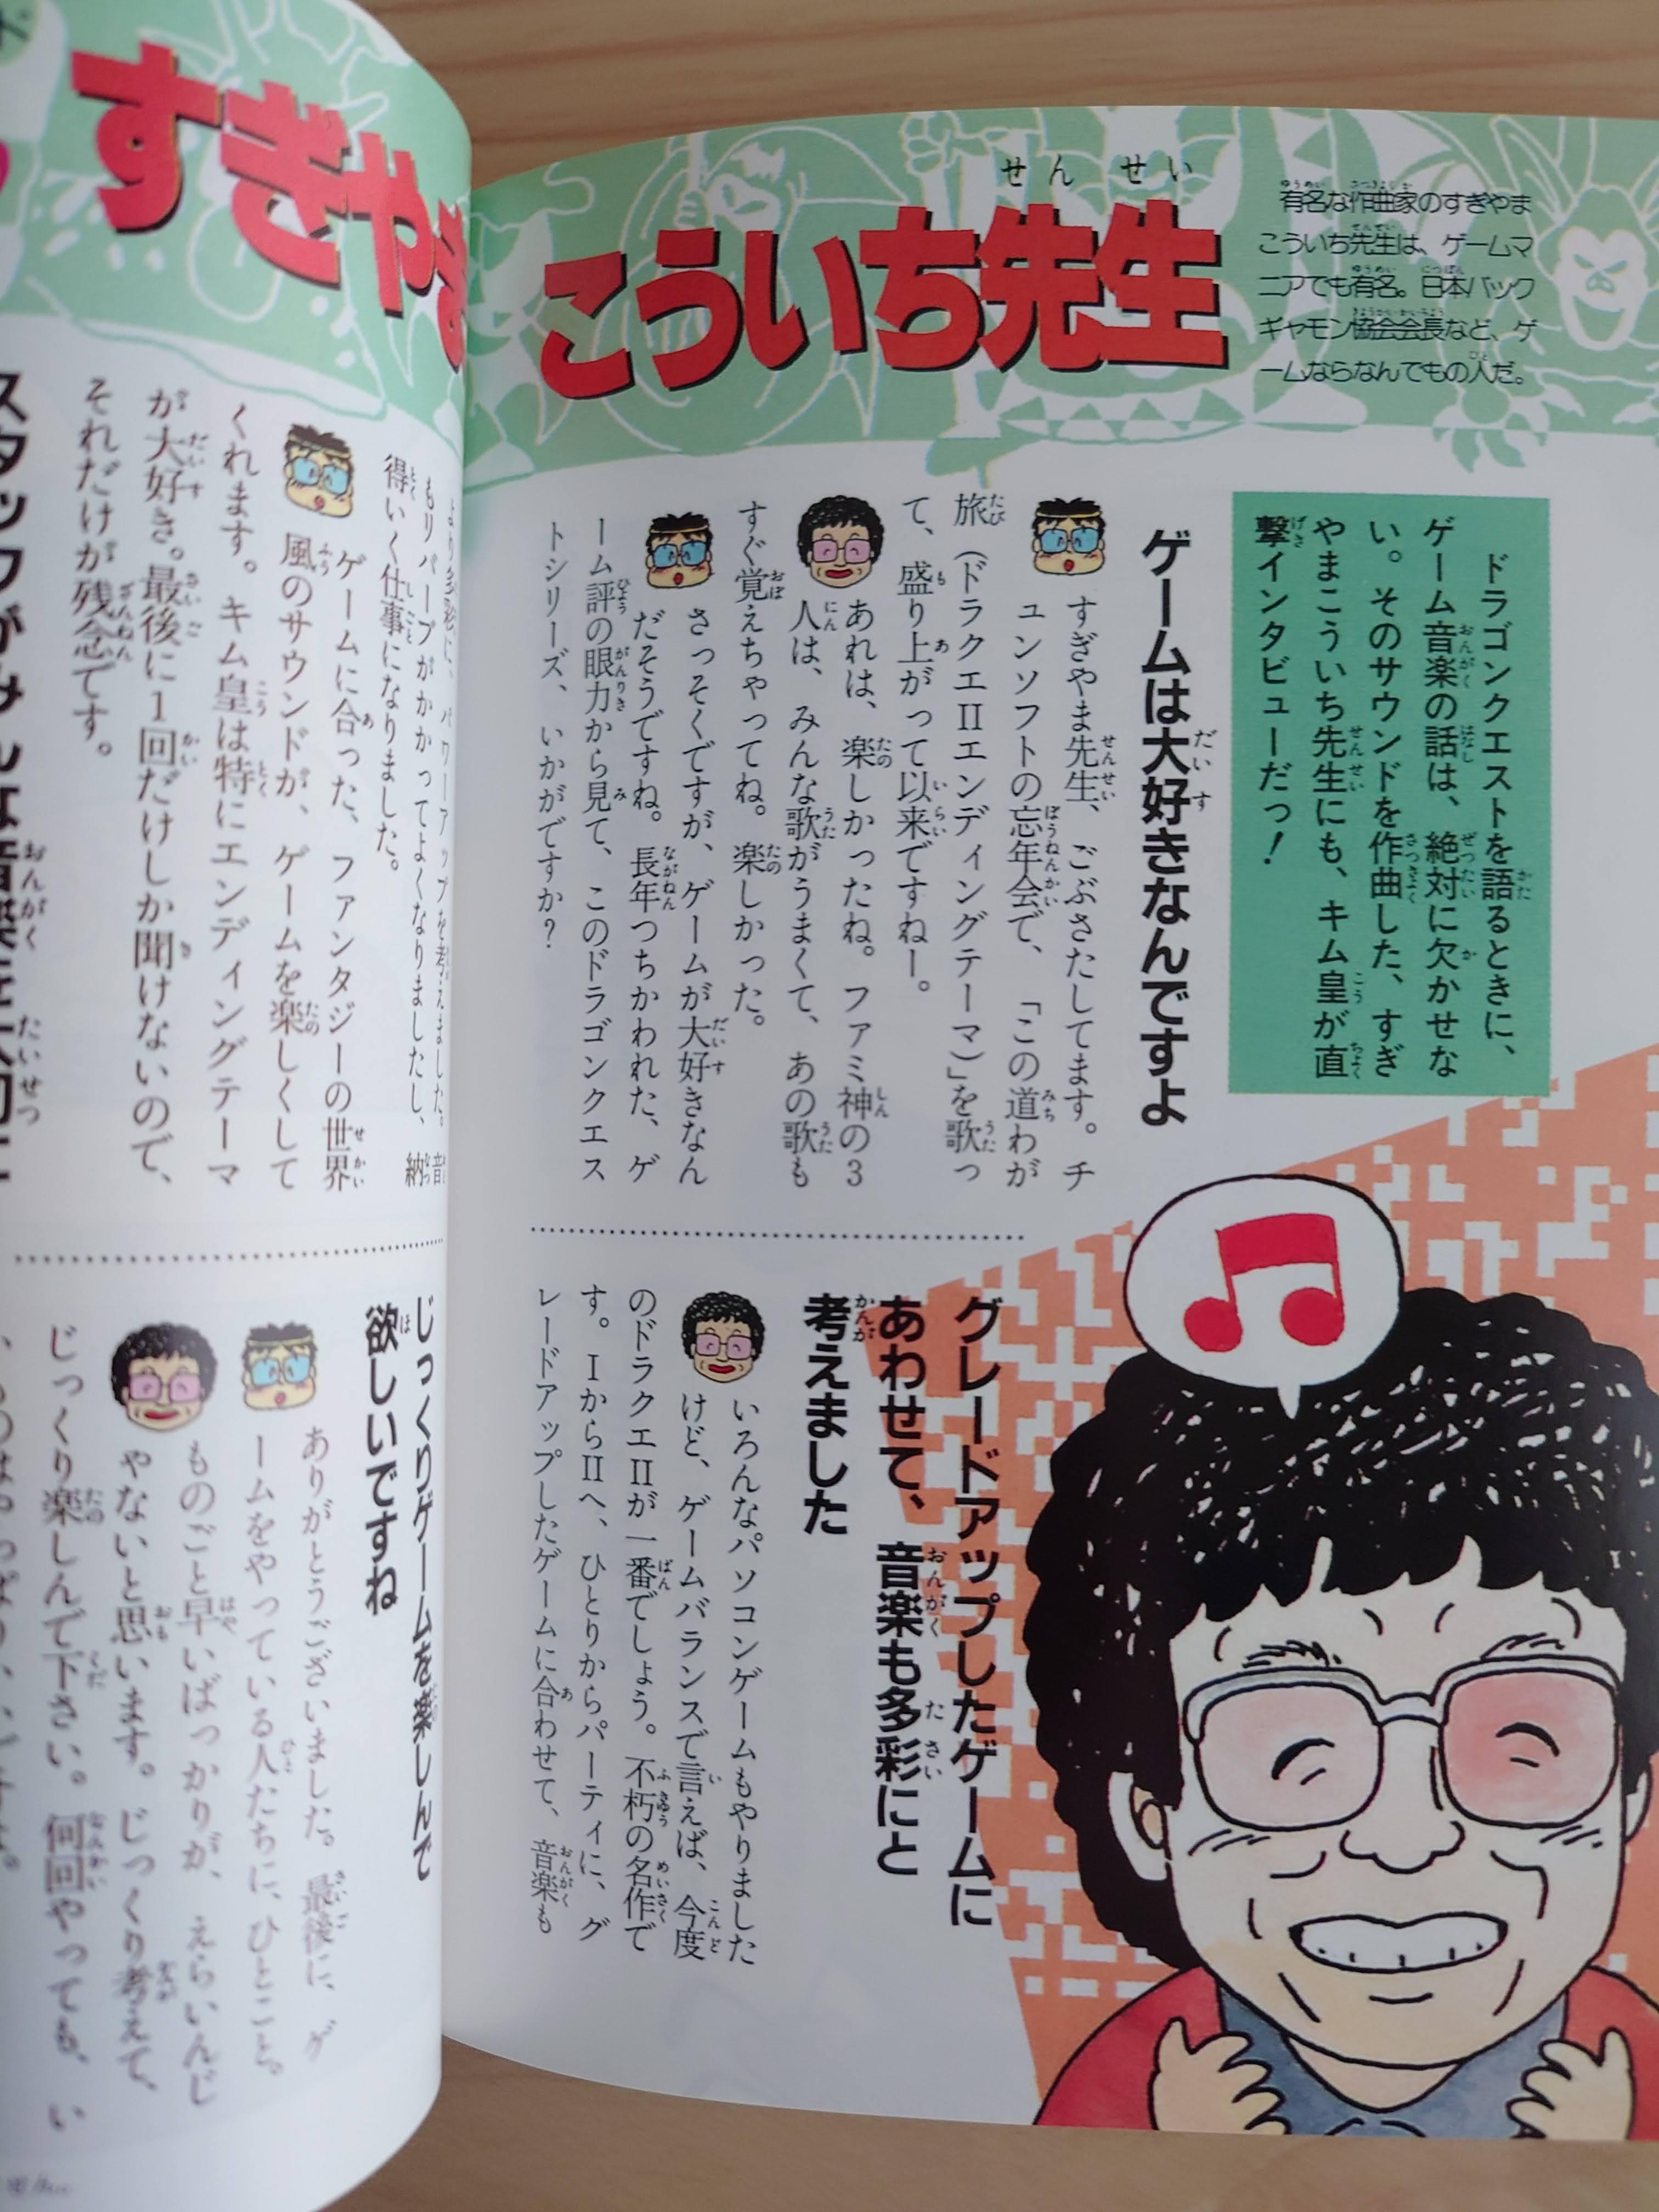 すぎやま
こういち先生
せん せい
有名な作曲家のすぎやま
こういち先生は、ゲームマ
ニアでも有名。日本バック
ギャモン協会会長など、ゲ
ームならなんでもの人だ。
ドラゴンクエストを語るときに、
ゲーム音楽の話は、絶対に欠かせな
い。そのサウンドを作曲した、すぎ
やまこういち先生にも、キム皇が直
撃インタビューだっ！
ゲームは大好きなんですよ
すぎやま先生、ごぶさたしてます。チ
ュンソフトの忘年会で、「この道わが
旅（ドラクエⅡエンディングテーマ）」を歌っ
て、盛り上がって以来ですねー。
あれは、楽しかったね。ファミ神の3
人は、みんな歌がうまくて、あの歌も
すぐ覚えちゃってね。楽しかった。
さっそくですが、ゲームが大好きなん
だそうですね。長年つちかわれた、ゲ
ーム評の眼力から見て、このドラゴンクエス
トシリーズ、いかがですか？
グレードアップしたゲームに
あわせて、音楽も多彩にと
考えました
いろんなパソコンゲームもやりました
けど、ゲームバランスで言えば、今度
のドラクエⅡが一番でしょう。不朽の名作で
す。ⅠからⅡへ、ひとりからパーティに、グ
レードアップしたゲームに合わせて、音楽も
より多彩に、パワーアップを考えました。音
もリバーブがかかってよくなりましたし、納
得いく仕事になりました。
ゲームに合った、ファンタジーの世界
風のサウンドが、ゲームを楽しくして
くれます。キム皇は特にエンディングテーマ
が大好き。最後に1回だけしか聞けないので、
それだけが残念です。
スタッフがみんな音楽を大切に
じっくりゲームを楽しんで
欲しいですね
ありがとうございました。最後に、ゲ
ームをやっている人たちに、ひとこと。
ものごと早いばっかりが、えらいんじ
ゃないと思います。じっくり考えて、
じっくり楽しんで下さい。何回やっても、い